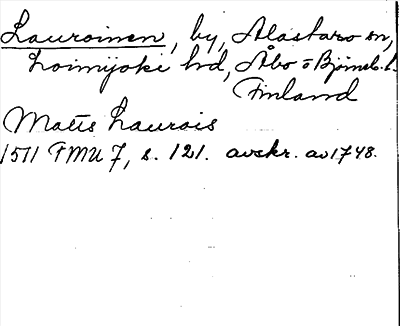 Lauroinen, by, Alastaro sn,
Loimijoki hd, Åbo o Björneb. l.
Finland
Matis Laurois
1511 FMU 7, s. 121. avskr. av 1748.